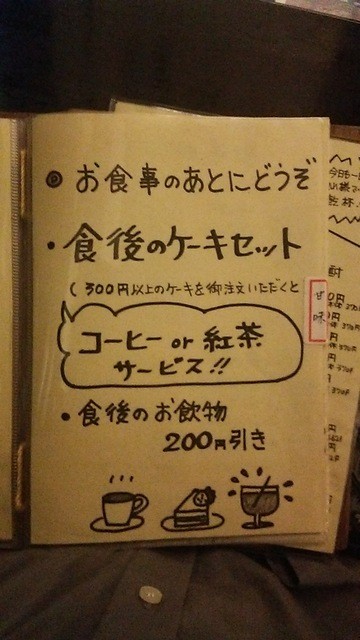 ◎ お食事のあとにどうぞ
・食後のケーキセット
(300円以上のケーキを御注文いただくと
コーヒー or 紅茶
サービス!!
・食後のお飲物
200円引き
甘味